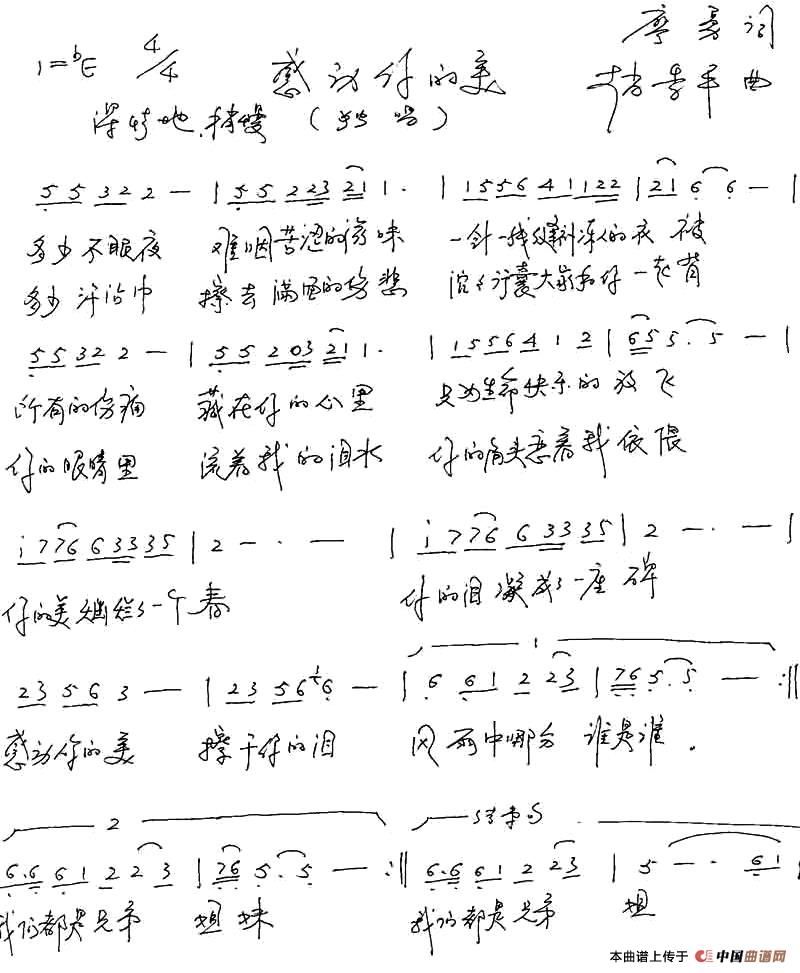 1=bE 4/4 感动你的美 廖勇词
深情地.稍慢 (独唱) 李平曲
5 5 3 2 2 — | 5 5 2 2 3 2 1 1. | 1 5 5 6 4 1 1 2 2 | 2 1 6 6 — |
多少不眠夜 难咽苦涩的滋味 一针一线缝制冻人的衣被
多少汗沾巾 擦去满面的伤悲 沉々行囊大家和你一起背
5 5 3 2 2 — | 5 5 2 0 3 2 1 1. | 1 5 5 6 4 1 2 | 6 5 5. 5 — |
所有的伤痛 藏在你的心里 只为生命快乐的放飞
你的眼睛里 流着我的泪水 你的肩头恋着我依偎
i 7 7 6 6 3 3 3 5 | 2 — · — | i 7 7 6 6 3 3 3 5 | 2 — · — |
你的美灿烂了一个春 你的泪凝成了一座碑
1
2 3 5 6 3 — | 2 3 5 6 1 6 — | 6 6 1 2 2 3 | 7 6 5. 5 — :||
感动你的美 擦干你的泪 风雨中哪分谁是谁.
2 结束句
6. 6 6 1 2 2 3 | 7 6 5. 5 — :|| 6. 6 6 1 2 2 3 | 5 — · 6 1
我们都是兄弟姐妹 我们都是兄弟姐
本曲谱上传于 中国曲谱网